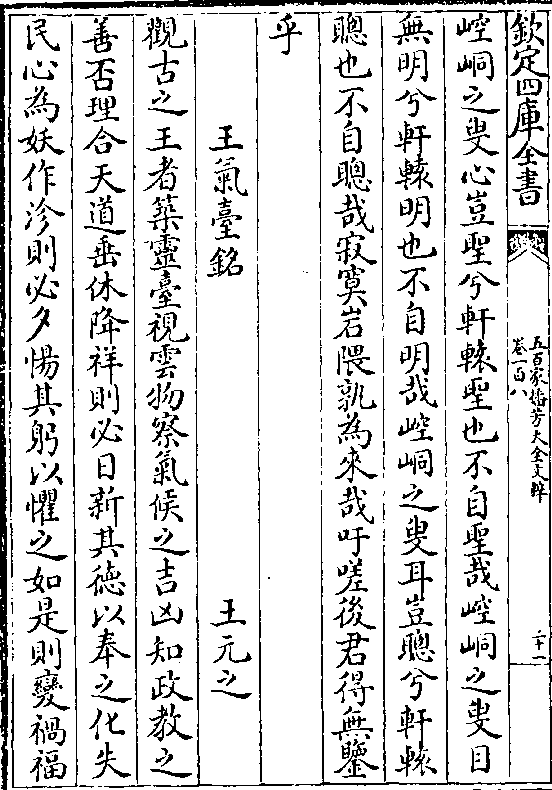 欽定四庫全書
五百家播芳大全文粹
卷一百八
二十一
崆峒之叟心豈聖兮軒轅聖也不自聖哉崆峒之叟目
無明兮軒轅明也不自明哉崆峒之叟耳豈聰兮軒轅
聰也不自聰哉寂寞岩隈孰為來哉吁嗟後君得無鑒
乎
王氣臺銘 王元之
觀古之王者築靈臺視雲物察氣候之吉凶知政教之
善否理合天道垂休降祥則必日新其德以奉之化失
民心為妖作沴則必夕惕其躬以懼之如是則變禍福